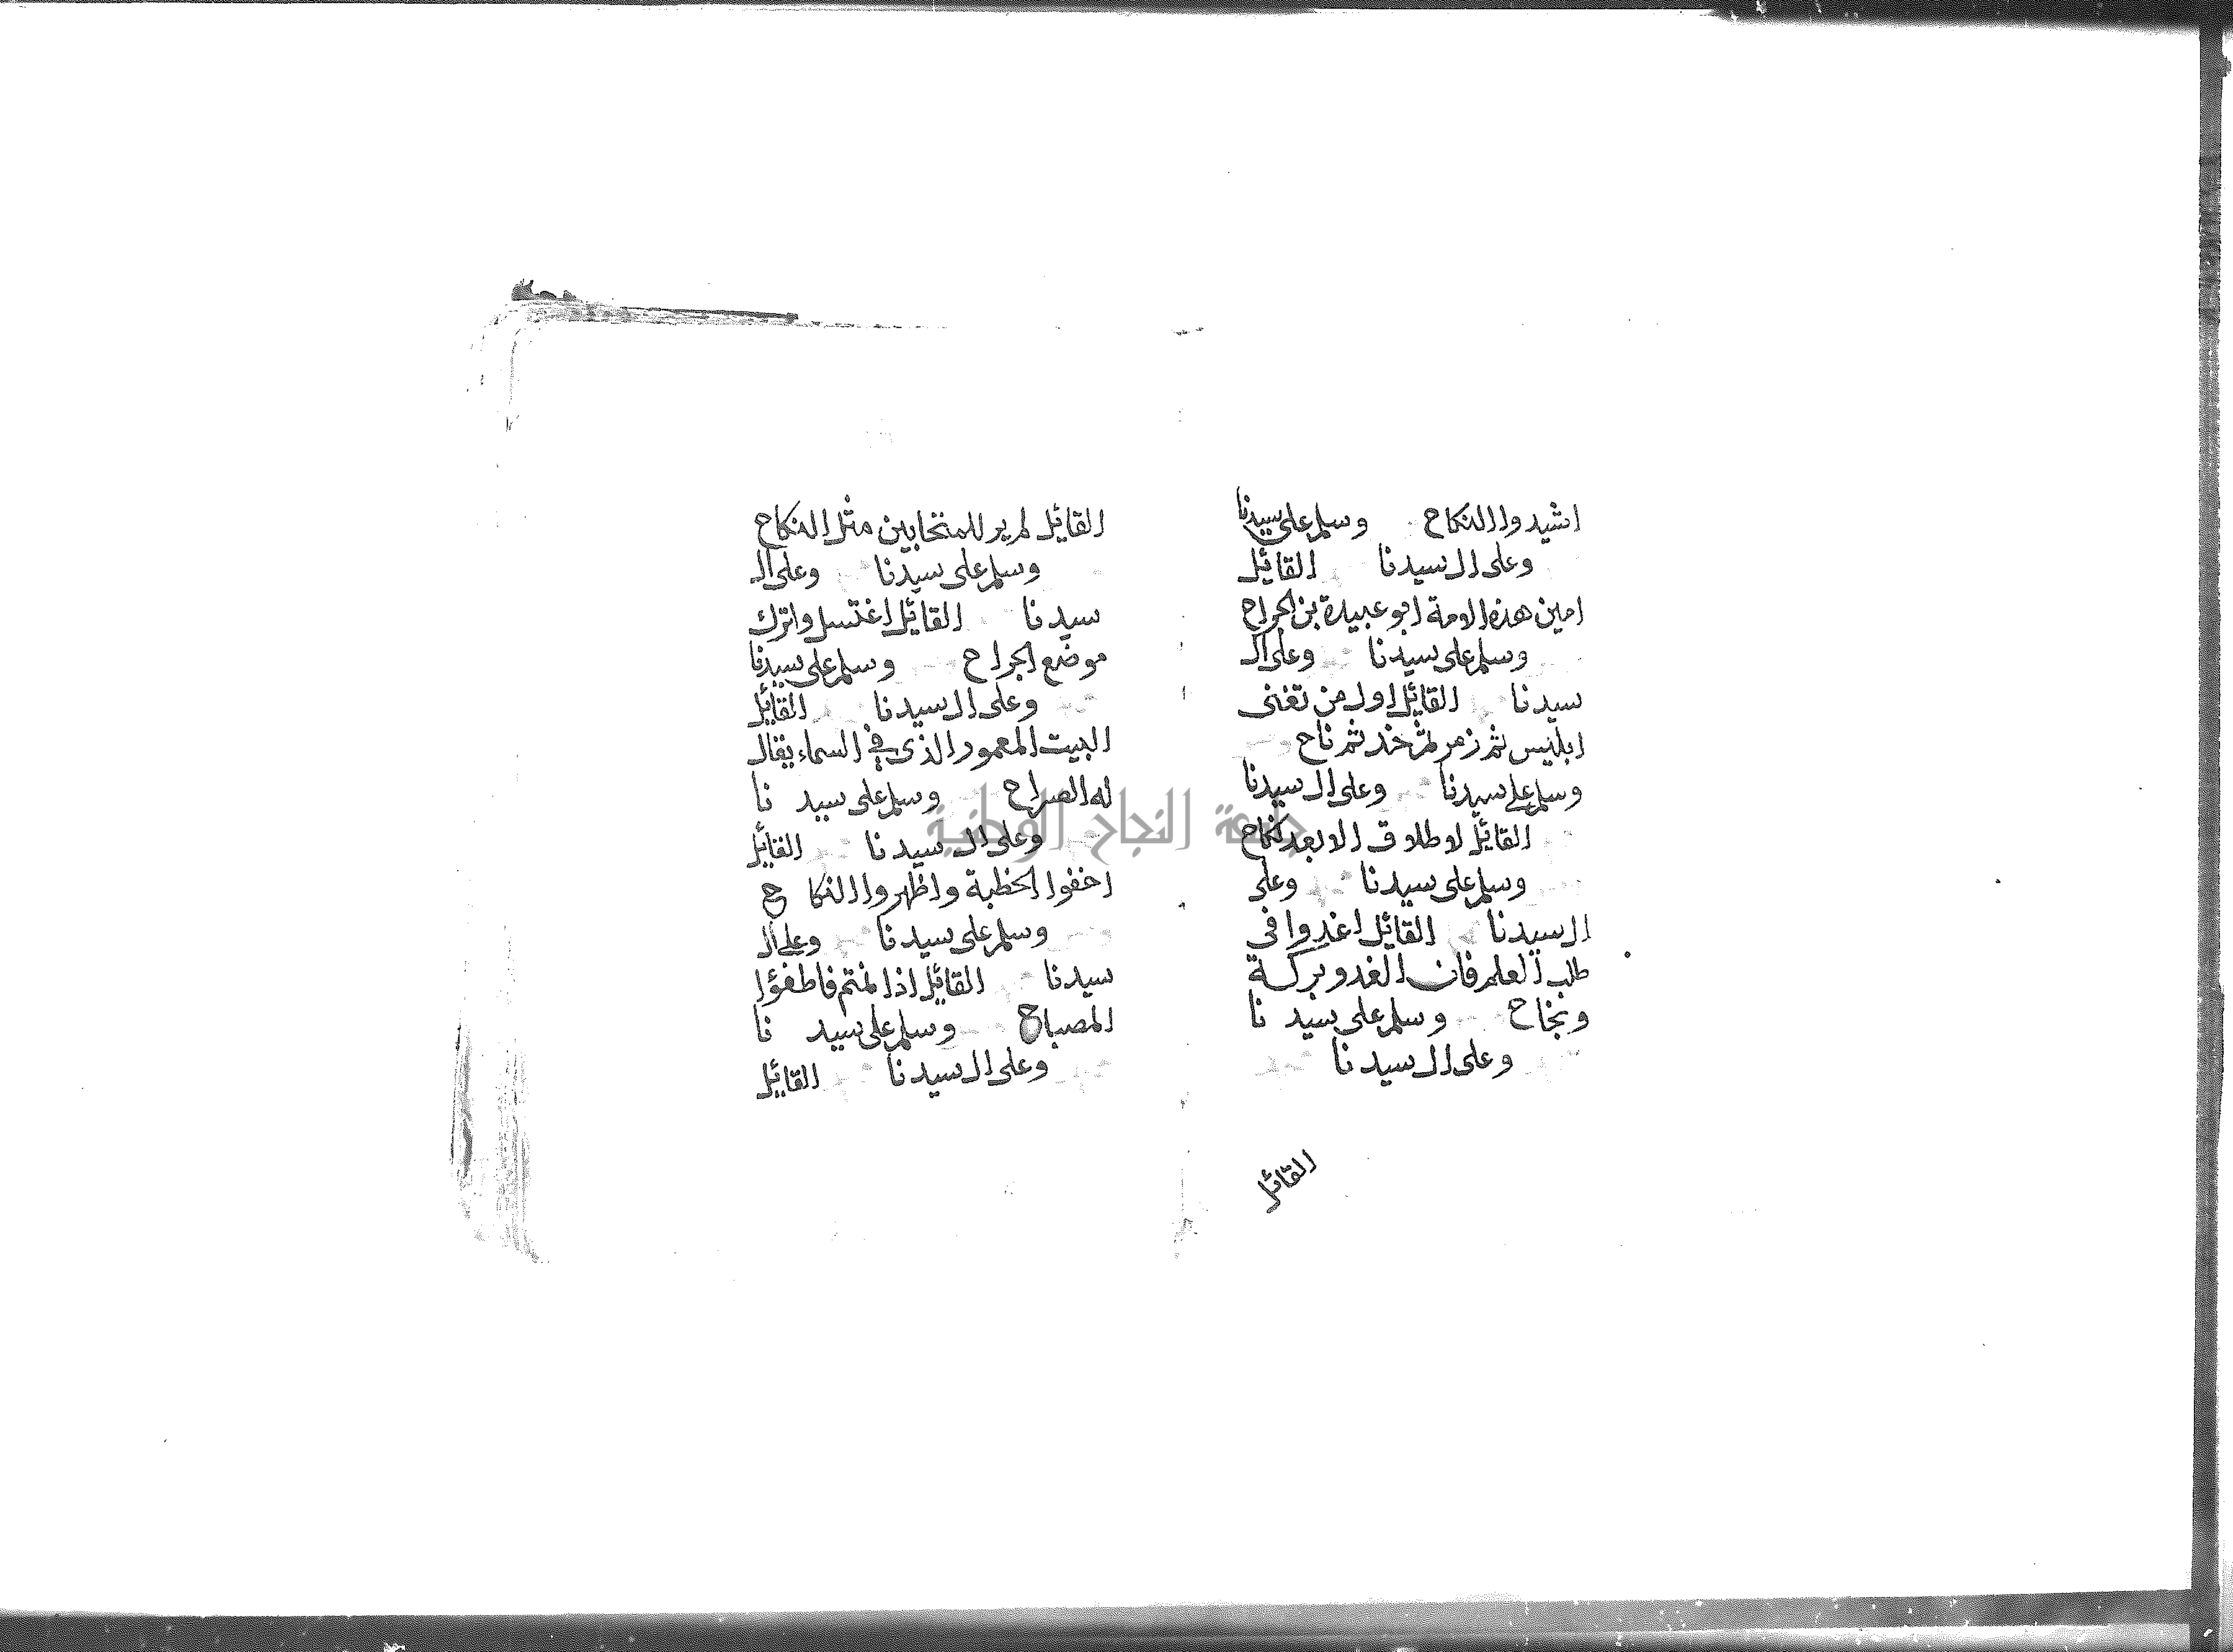 اشيدوا النكاح وسلم على سيدنا
وعلى ال سيدنا القائل
امين هذه الامة ابو عبيدة بن الجراح
وسلم على سيدنا وعلى ال
سيدنا القائل اول من تغنى
ابليس ثم زمر ثم ناح
وسلم على سيدنا وعلى ال سيدنا
القائل لا طلاق الا بعد نكاح
وسلم على سيدنا وعلى
ال سيدنا القائل اغدوا في
طلب العلم فان الغدو بركة
ونجاح وسلم على سيدنا
وعلى ال سيدنا
القائل
القائل لم ير للمتحابين مثل النكاح
وسلم على سيدنا وعلى ال
سيدنا القائل اغتسل واترك
موضع الجراح وسلم على سيدنا
وعلى ال سيدنا القائل
البيت المعمور الذى في السماء يقال
له الصراح وسلم على سيدنا
وعلى ال سيدنا القائل
اخفوا الخطبة واظهروا النكاح
وسلم على سيدنا وعلى ال
سيدنا القائل اذا نمتم فاطفؤا
المصباح وسلم على سيدنا
وعلى ال سيدنا القائل
جامعة النجاح الوطنية